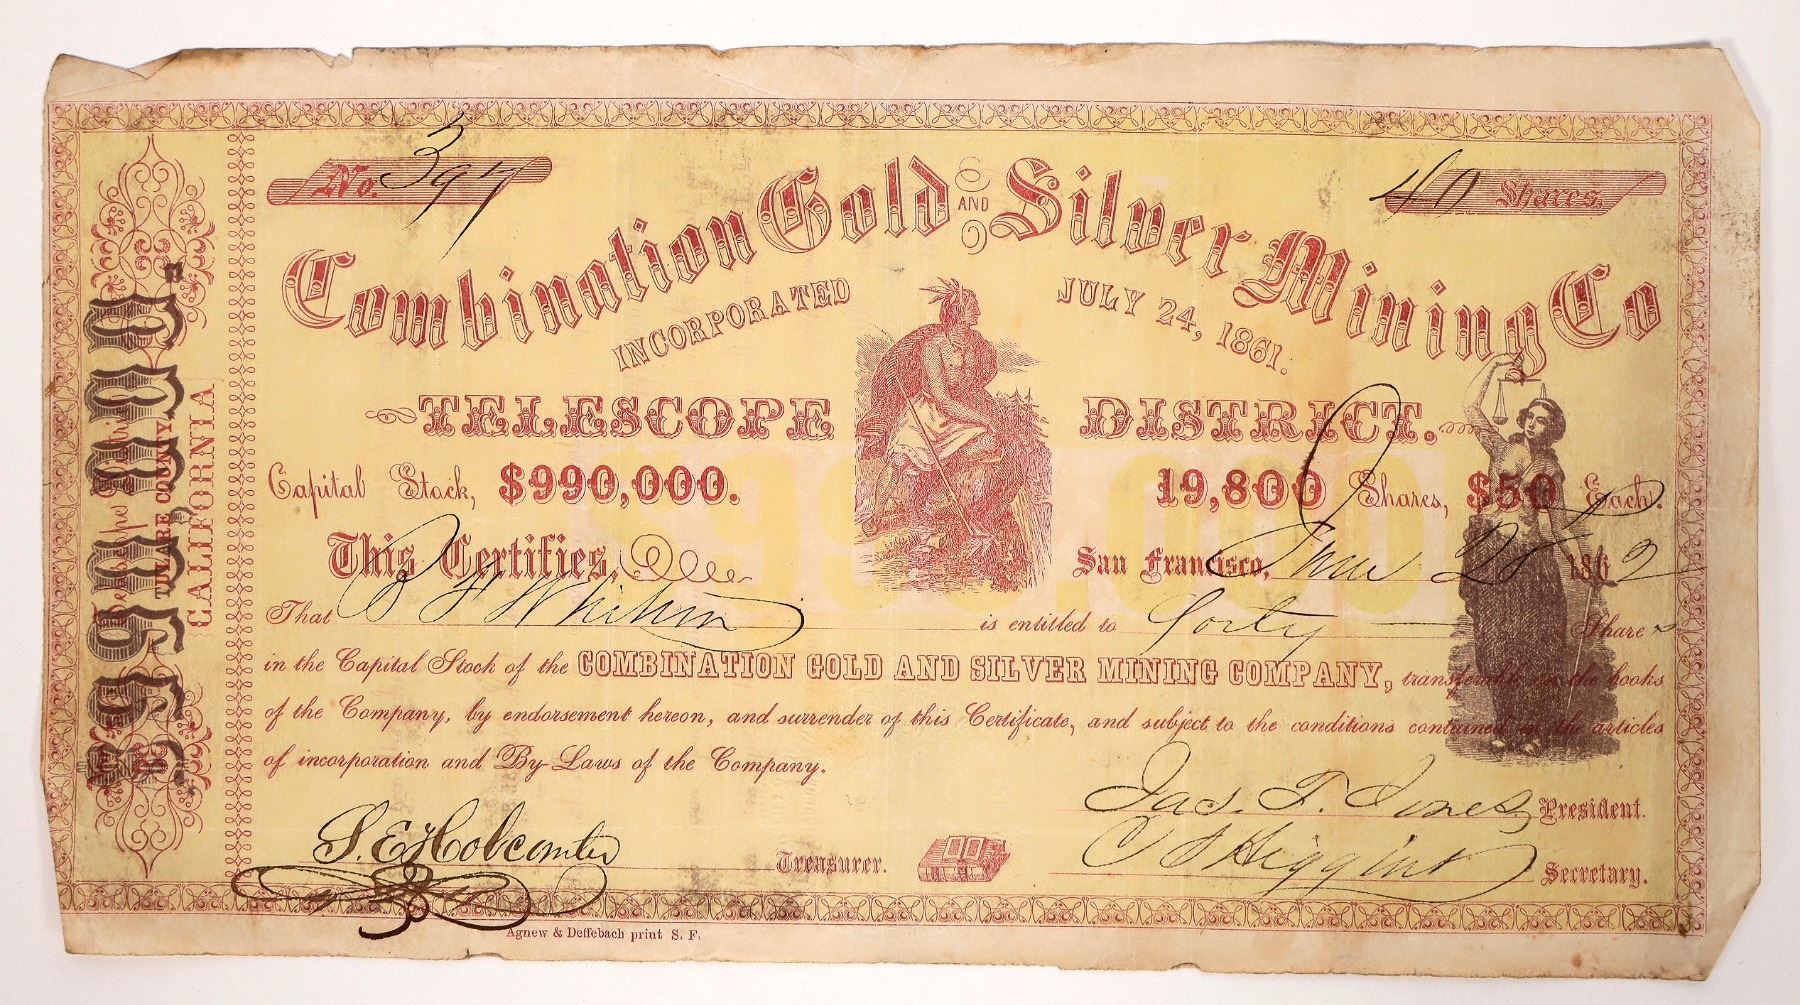 No. 397
40 Shares.
Combination Gold AND Silver Mining Co
INCORPORATED JULY 24, 1861.
TELESCOPE DISTRICT.
Capital Stock, $990,000. 19,800 Shares, $50 Each.
$990,000
This Certifies, San Francisco, June 28 1862
That is entitled to Forty Shares
in the Capital Stock of the COMBINATION GOLD AND SILVER MINING COMPANY, transferable on the books
of the Company, by endorsement hereon, and surrender of this Certificate, and subject to the conditions contained in the articles
of incorporation and By-Laws of the Company.
Jas. F. Jones President.
S. E. Holcombe Treasurer.
C S Higgins Secretary.
Agnew & Deffebach print S. F.
TULARE COUNTY
CALIFORNIA